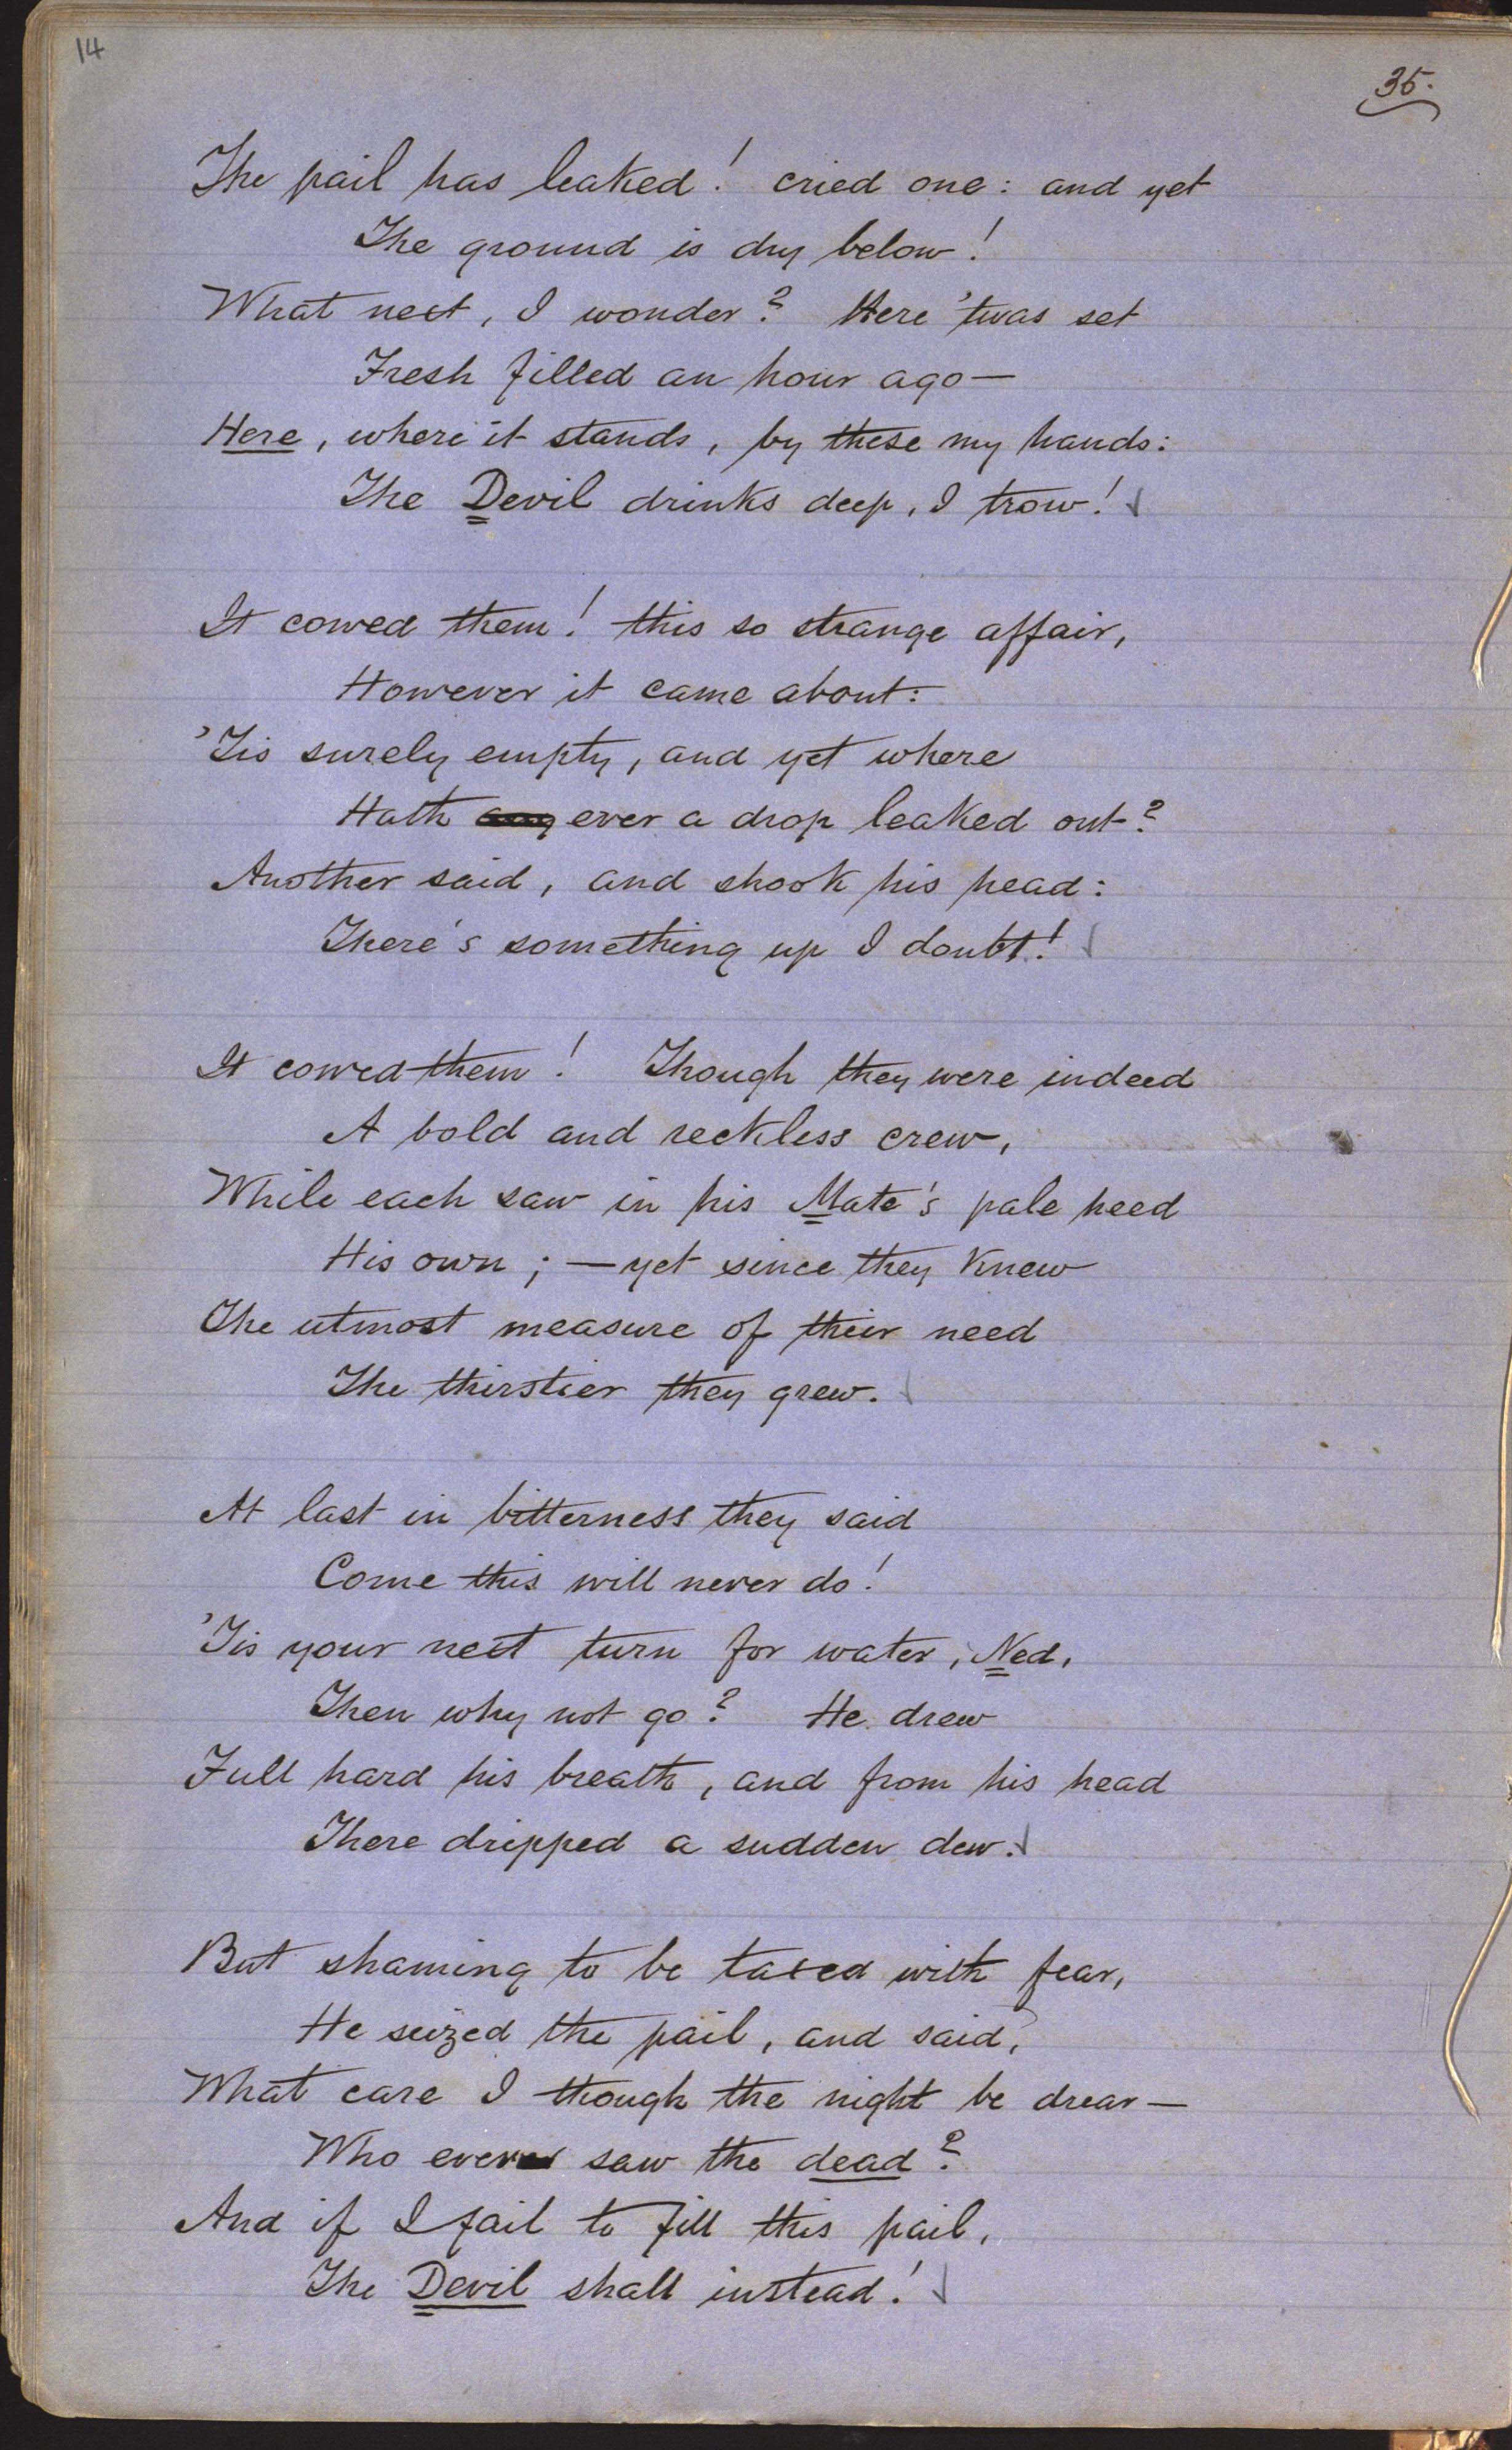 14
35.
The pail has leaked! cried one: and yet
The ground is dry below!
What next, I wonder? Here 'twas set
Fresh filled an hour ago—
Here, where it stands, by these my hands:
The Devil drinks deep, I trow!
It cowed them! this so strange affair,
However it came about:
'Tis surely empty, and yet where
Hath ever a drop leaked out?
Another said, and shook his head:
There's something up I doubt!
It cowed them! Though they were indeed
A bold and reckless crew,
While each saw in his Mate's pale heed
His own; —yet since they knew
The utmost measure of their need
The thirstier they grew.
At last in bitterness they said
Come this will never do!
'Tis your next turn for water, Ned,
Then why not go? He drew
Full hard his breath, and from his head
There dripped a sudden dew.
But shaming to be taxed with fear,
He seized the pail, and said,
What care I though the night be drear—
Who ever saw the dead?
And if I fail to fill this pail,
The Devil shall instead!